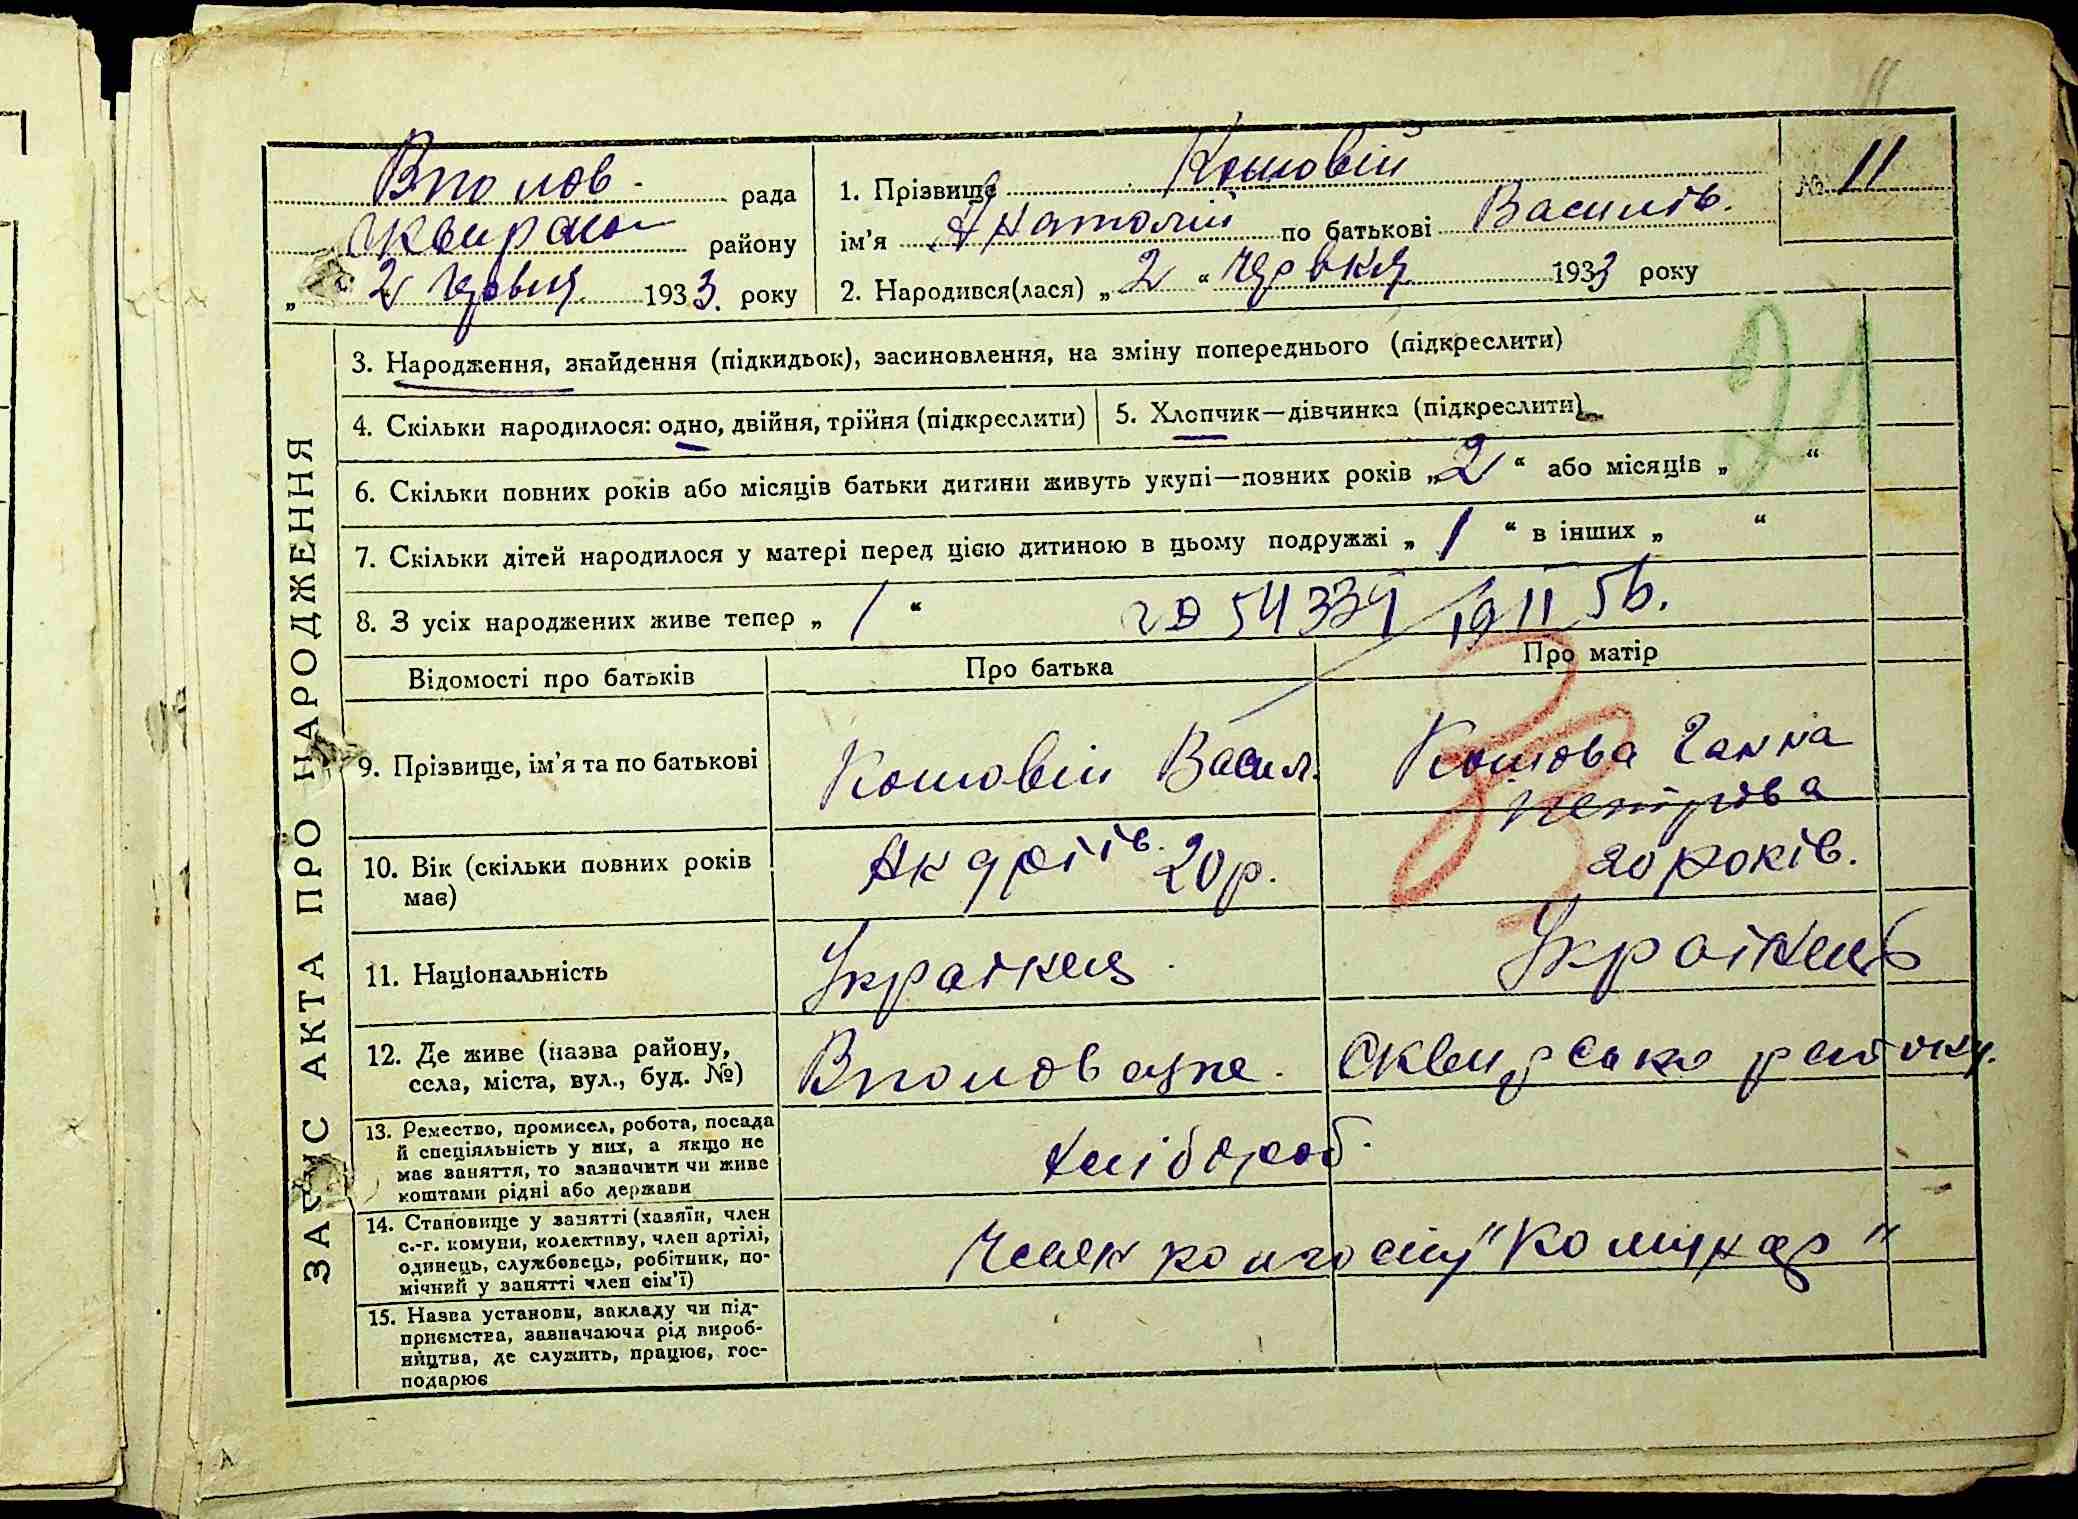 Вполов. рада
Сквирсько району
„ 2 червня 1933. року
1. Прізвище Кошовій
ім'я Анатолій по батькові Василів.
2. Народився(лася) „2“ червня 1933 року
№ 11
ЗАПИС АКТА ПРО НАРОДЖЕННЯ
3. Народження, знайдення (підкидьок), засиновлення, на зміну попереднього (підкреслити)
21
4. Скільки народилося: одно, двійня, трійня (підкреслити)
5. Хлопчик—дівчинка (підкреслити)
6. Скільки повних років або місяців батьки дитини живуть укупі—повних років „2“ або місяців „ “
7. Скільки дітей народилося у матері перед цією дитиною в цьому подружжі „ 1 “ в інших „ “
8. З усіх народжених живе тепер „ 1 “ 19 11 56.
Відомості про батьків
Про батька
Про матір
9. Прізвище, ім'я та по батькові
Кошовій Васил.
Кошова Ганна
Петрівa
10. Вік (скільки повних років
має)
Андріїв. 20 р.
20 років.
11. Національність
Українец
Українець
12. Де живе (назва району,
села, міста, вул., буд. №)
Вполовецке. Сквирсько району.
13. Ремество, промисел, робота, посада
й спеціяльність у них, а якщо не
має заняття, то зазначити чи живе
коштами рідні або держави
Хлібороб.
14. Становище у занятті (хазяїн, член
с.-г. комуни, колективу, член артілі,
одинець, службовець, робітник, по-
мічний у занятті член сім'ї)
Член колгоспу "Комунар"
15. Назва установи, закладу чи під-
приємства, зазначаючи рід вироб-
ництва, де служить, працює, гос-
подарює